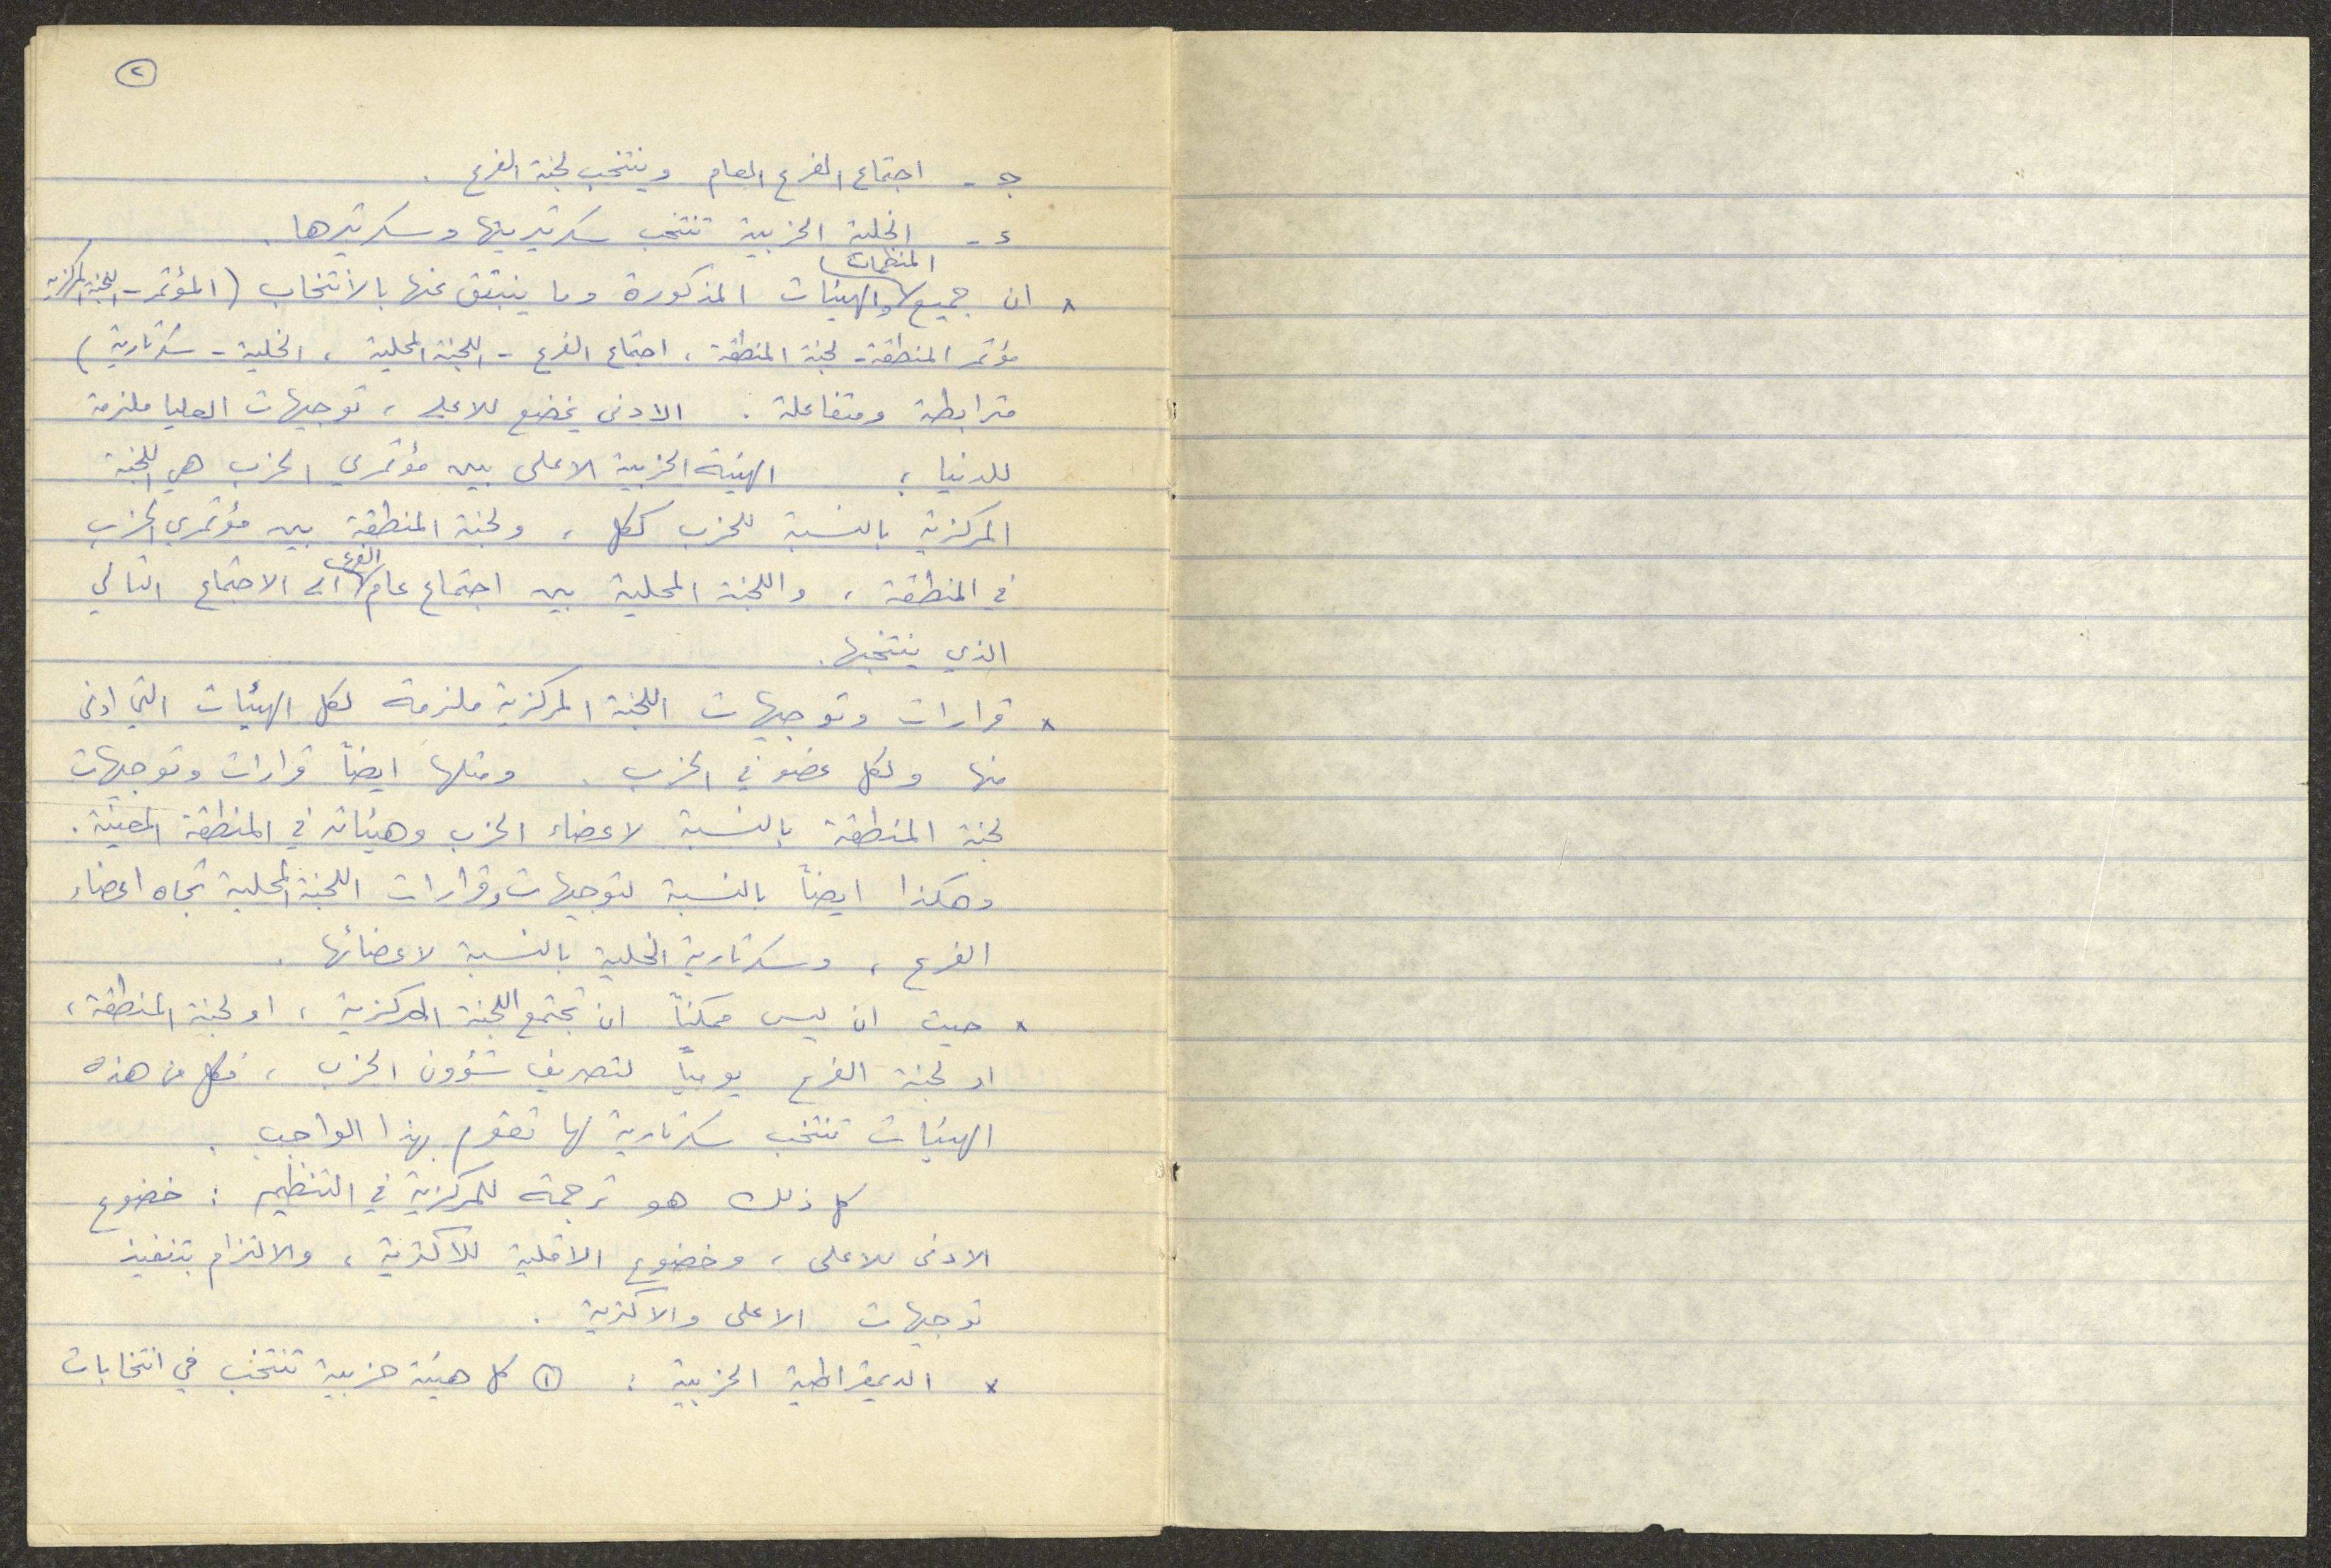 ٢
جـ - اجتماع الفرع العام وينتخب لجنة الفرع .
د - الخلية الحزبية تنتخب سكرتيريتها وسكرتيرها .
* ان جميع المنظمات والهيئات المذكورة وما ينبثق عنها بالانتخاب (المؤتمر - اللجنة المركزية
مؤتمر المنطقة - لجنة المنطقة ، اجتماع الفرع - اللجنة المحلية ، الخلية - سكرتارية )
مترابطة ومتفاعلة . الادنى يخضع للاعلى ، توجيهات العليا ملزمة
للدنيا ؛ الهيئة الحزبية الاعلى بين مؤتمري الحزب هي اللجنة
المركزية بالنسبة للحزب ككل ، ولجنة المنطقة بين مؤتمري الحزب
في المنطقة ، واللجنة المحلية بين اجتماع عام الفرع الى الاجتماع التالي
الذي ينتخبها .
* قرارات وتوجيهات اللجنة المركزية ملزمة لكل الهيئات التي ادنى
منها ولكل عضو في الحزب . ومثلها ايضاً قرارات وتوجيهات
لجنة المنطقة بالنسبة لاعضاء الحزب وهيئاته في المنطقة المعينة .
وهكذا ايضاً بالنسبة لتوجيهات وقرارات اللجنة المحلية تجاه اعضاء
الفرع ، وسكرتارية الخلية بالنسبة لاعضائها .
* حيث ان ليس ممكناً ان تجتمع اللجنة المركزية ، او لجنة المنطقة ،
او لجنة الفرع يومياً لتصريف شؤون الحزب ، فكل من هذه
الهيئات تنتخب سكرتارية لها تقوم بهذا الواجب .
كل ذلك هو ترجمة للمركزية في التنظيم : خضوع
الادنى للاعلى ، وخضوع الاقلية للاكثرية ، والالتزام بتنفيذ
توجيهات الاعلى والاكثرية .
* الديمقراطية الحزبية : ① كل هيئة حزبية تنتخب في انتخابات